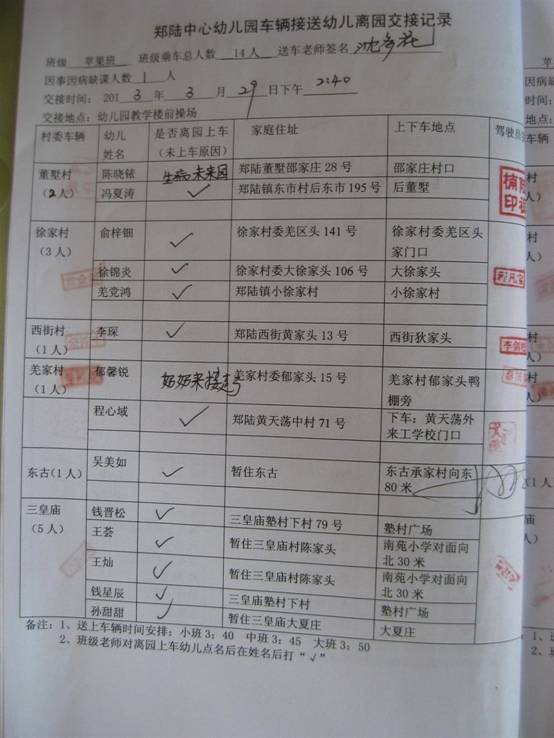 郑陆中心幼儿园车辆接送幼儿离园交接记录
班级 苹果班 班级乘车总人数 14人 送车老师签名
因事因病缺课人数 1 人
交接时间：2013 年 3 月 29 日下午 2:40
交接地点：幼儿园教学楼前操场
村委车辆 幼儿姓名 是否离园上车（未上车原因） 家庭住址 上下车地点
董墅村（2人） 陈晓铱 生病未来园 郑陆董墅邵家庄28号 邵家庄村口
冯夏涛 ✓ 郑陆镇东市村后东市195号 后董墅
徐家村（3人） 俞梓钿 ✓ 徐家村委羌区头141号 徐家村委羌区头家门口
徐锦炎 ✓ 徐家村委大徐家头106号 大徐家头
羌党鸿 ✓ 郑陆镇小徐家村 小徐家村
西街村（1人） 李琛 ✓ 郑陆西街黄家头13号 西街狄家头
羌家村（1人） 郁馨锐 奶奶来接走 羌家村委郁家头15号 羌家村郁家头鸭棚旁
程心域 ✓ 郑陆黄天荡中村71号 下车：黄天荡外来工学校门口
东古（1人） 吴美如 ✓ 暂住东古 东古承家村向东80米
三皇庙（5人） 钱晋松 ✓ 三皇庙塾村下村79号 塾村广场
王荟 ✓ 暂住三皇庙村陈家头 南苑小学对面向北30米
王灿 ✓ 暂住三皇庙村陈家头 南苑小学对面向北30米
钱星辰 ✓ 三皇庙塾村下村 塾村广场
孙甜甜 ✓ 暂住三皇庙大夏庄 大夏庄
备注：1、送上车辆时间安排：小班3：40 中班3：45 大班3：50
2、班级老师对离园上车幼儿点名后在姓名后打“√”